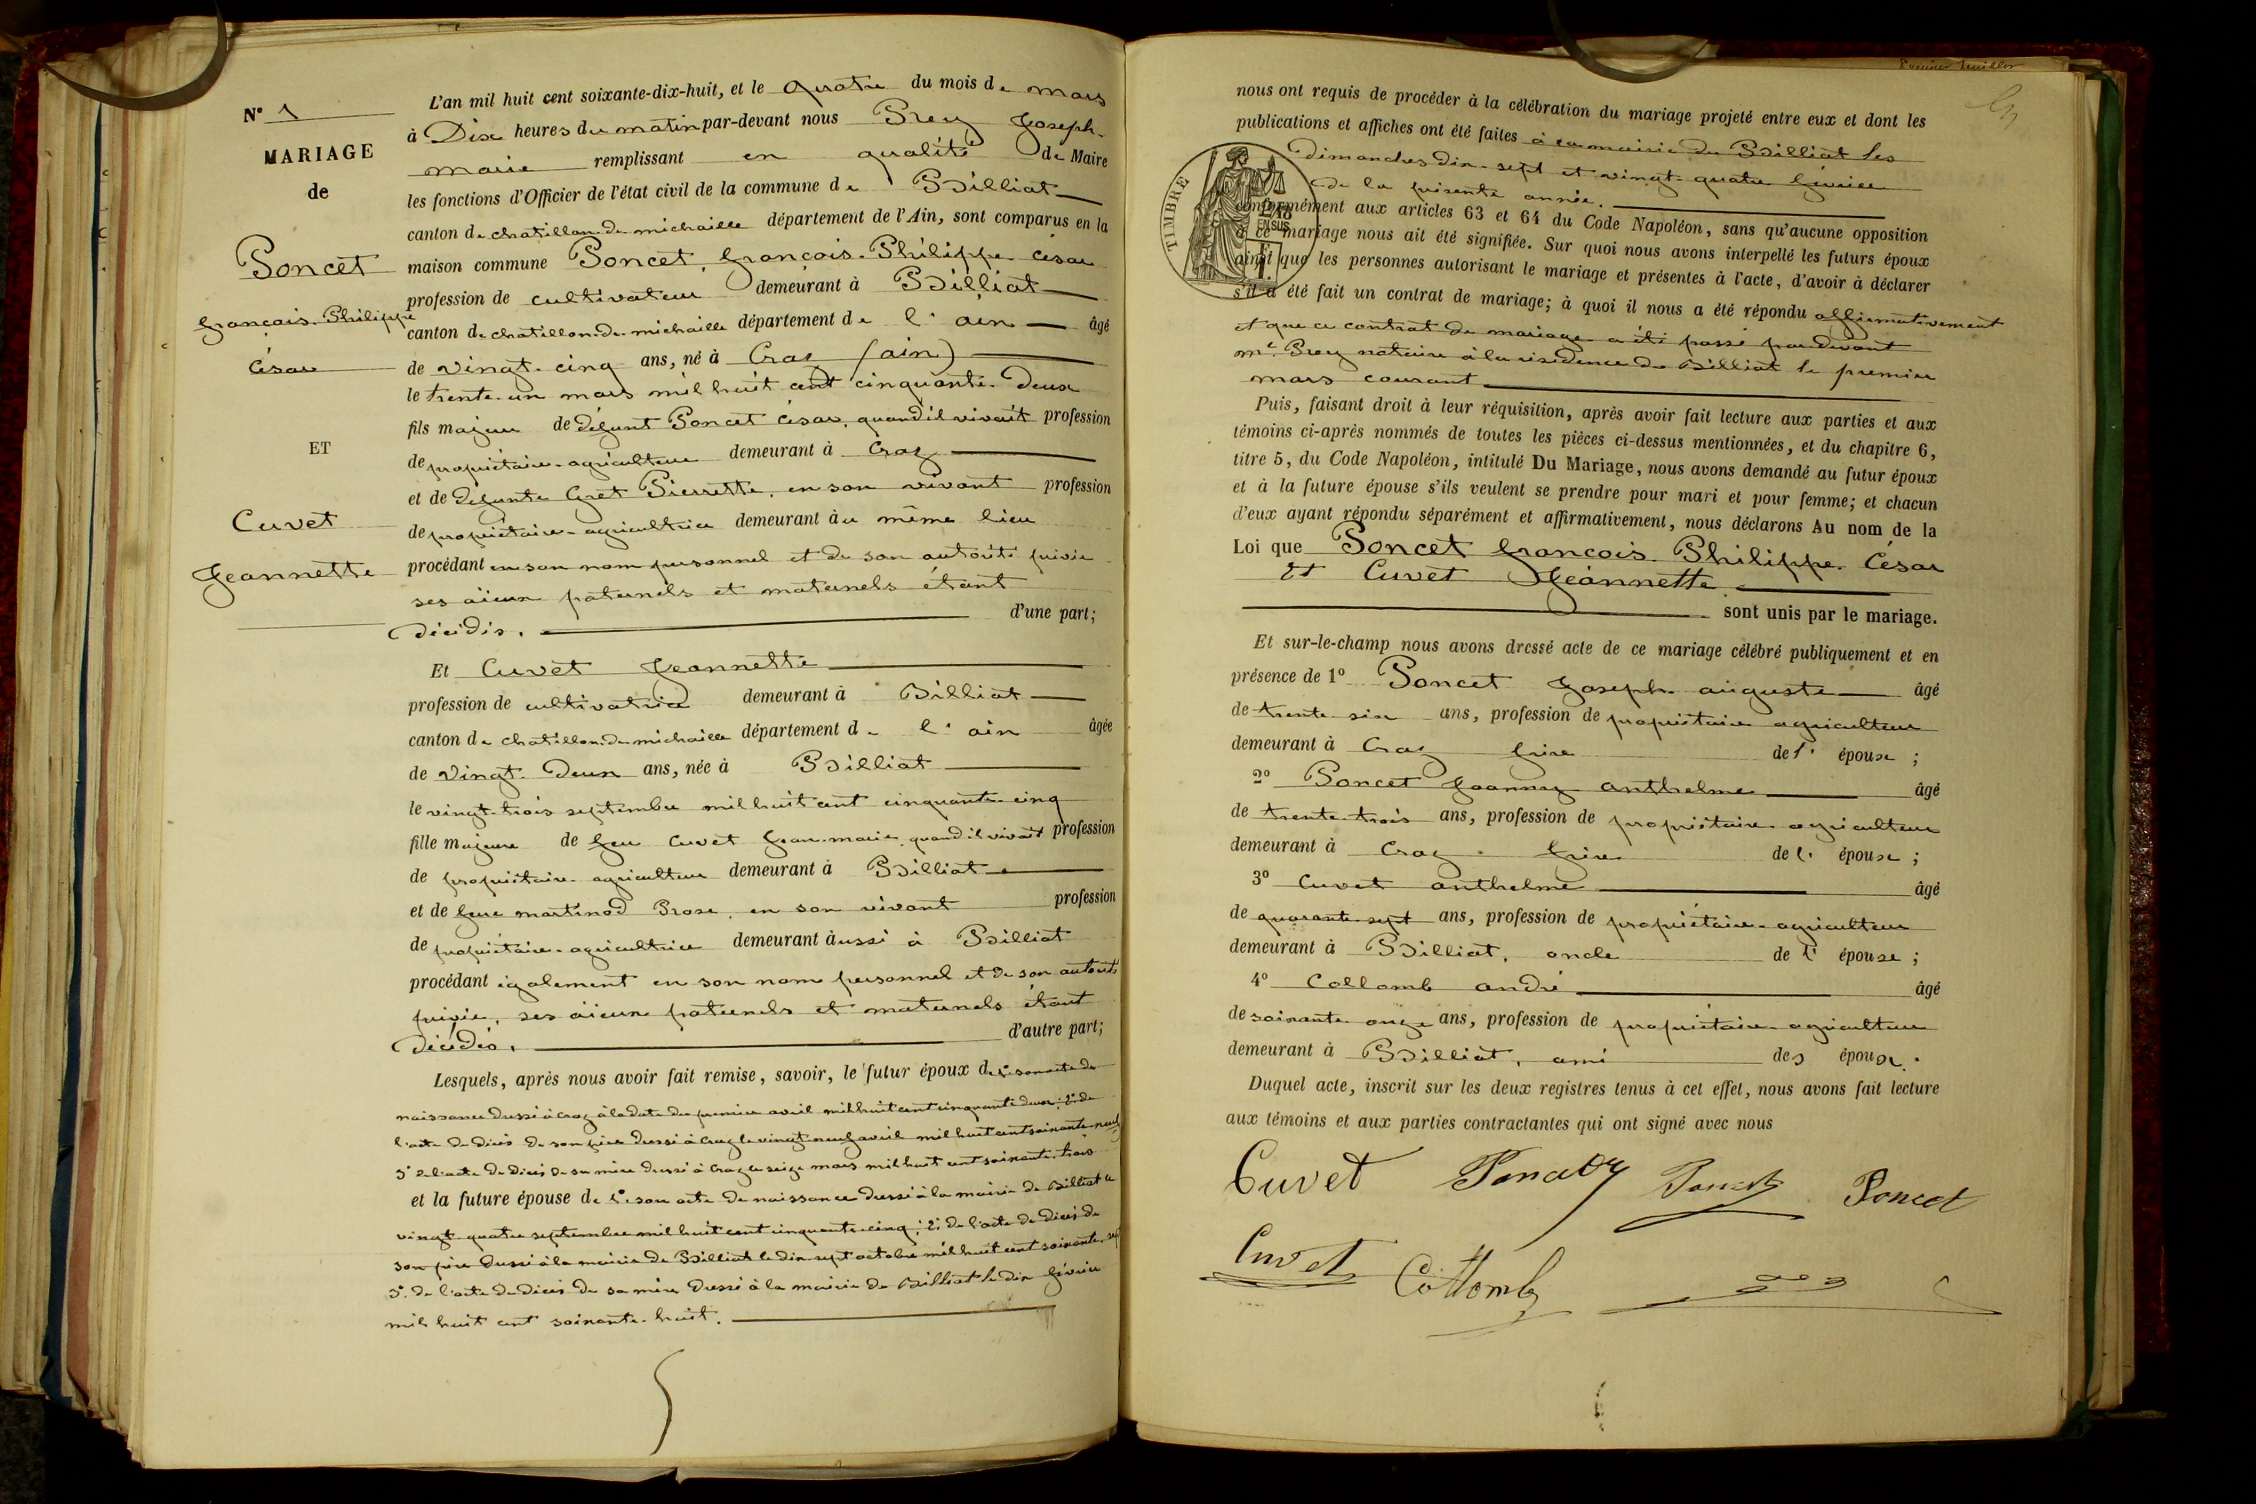 N° 1
MARIAGE
de
Poncet
François-Philippe
César
ET
Cuvet
Jeannette
L'an mil huit cent soixante-dix-huit, et le quatre du mois de mars
à Dix heures du matin par-devant nous Prey Joseph-
marie remplissant en qualité de Maire
les fonctions d'Officier de l'état civil de la commune de Billiat
canton de chatillon-de-michaille département de l'Ain, sont comparus en la
maison commune Poncet, françois-Philippe César
profession de cultivateur demeurant à Billiat
canton de chatillon-de-michaille département de l'ain âgé
de vingt-cinq ans, né à Craz (ain)
le trente-un mars mil huit cent cinquante-Deux
fils majeur de défunt Poncet César, quand il vivait profession
de propriétaire-agriculteur demeurant à Craz
et de défunte Gret Pierrette, en son vivant profession
de propriétaire-agricultrice demeurant àu même lieu
procédant en son nom personnel et de son autorité privée
ses aïeux paternels et maternels étant
décédés. d'une part;
Et Cuvet Jeannette
profession de cultivatrice demeurant à Billiat
canton de chatillon-de-michaille département de l'ain âgée
de vingt-Deux ans, née à Billiat
le vingt-trois septembre mil huit cent cinquante-cinq
fille majeure de feu Cuvet Jean-marie, quand il vivait profession
de propriétaire-agriculteur demeurant à Billiat
et de feue martinod Prose, en son vivant profession
de propriétaire-agricultrice demeurant àussi à Billiat
procédant également en son nom personnel et de son autorité
privée, ses aïeux paternels et maternels étant
décédés. d'autre part;
Lesquels, après nous avoir fait remise, savoir, le futur époux de 1° son acte de
naissance dressé à Craz à la date du premier avril mil huit cent cinquante-deux; 2° de
l'acte de décès de son père dressé à Craz le vingt-neuf avril mil huit cent soixante-neuf
3° de l'acte de décès de sa mère dressé à Craz le seize mars mil huit cent soixante-trois
et la future épouse de 1° son acte de naissance dressé à la mairie de Billiat le
vingt-quatre septembre mil huit cent cinquante-cinq; 2° de l'acte de décès de
son père dressé à la mairie de Billiat le dix-sept octobre mil huit cent soixante-sept
3° de l'acte de décès de sa mère dressé à la mairie de Billiat le dix février
mil huit cent soixante-huit.
nous ont requis de procéder à la célébration du mariage projeté entre eux et dont les
publications et affiches ont été faites à la mairie de Billiat les
Dimanches dix-sept et vingt-quatre février
de la présente année.
TIMBRE
conformément aux articles 63 et 64 du Code Napoléon, sans qu'aucune opposition
à ce mariage nous ait été signifiée. Sur quoi nous avons interpellé les futurs époux
ainsi que les personnes autorisant le mariage et présentes à l'acte, d'avoir à déclarer
s'il a été fait un contrat de mariage; à quoi il nous a été répondu affirmativement
et que ce contrat de mariage a été passé par devant
me Prey notaire à la résidence de Billiat le premier
mars courant
Puis, faisant droit à leur réquisition, après avoir fait lecture aux parties et aux
témoins ci-après nommés de toutes les pièces ci-dessus mentionnées, et du chapitre 6,
titre 5, du Code Napoléon, intitulé Du Mariage, nous avons demandé au futur époux
et à la future épouse s'ils veulent se prendre pour mari et pour femme; et chacun
d'eux ayant répondu séparément et affirmativement, nous déclarons Au nom de la
Loi que Poncet françois-Philippe-César
et Cuvet Jeannette
sont unis par le mariage.
Et sur-le-champ nous avons dressé acte de ce mariage célébré publiquement et en
présence de 1° Poncet Joseph-auguste âgé
de trente-six ans, profession de propriétaire agriculteur
demeurant à Craz frère de l' époux ;
2° Poncet Joanny anthelme âgé
de trente-trois ans, profession de propriétaire-agriculteur
demeurant à Craz frère de l' époux ;
3° Cuvet anthelme âgé
de quarante-sept ans, profession de propriétaire-agriculteur
demeurant à Billiat, oncle de l' épouse ;
4° Collomb andré âgé
de soixante-onze ans, profession de propriétaire-agriculteur
demeurant à Billiat, ami des époux.
Duquel acte, inscrit sur les deux registres tenus à cet effet, nous avons fait lecture
aux témoins et aux parties contractantes qui ont signé avec nous
Cuvet Poncet Poncet Poncet
Cuvet Collomb